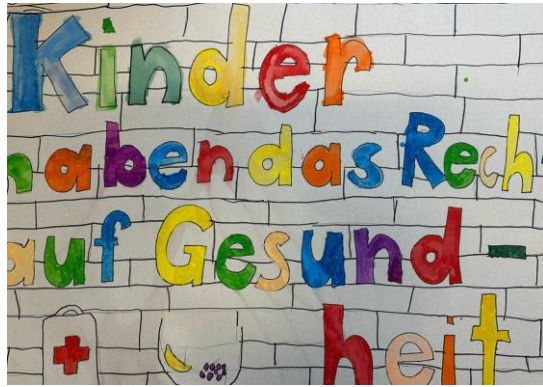 Kinder
haben das Rech
auf Gesund-
heit